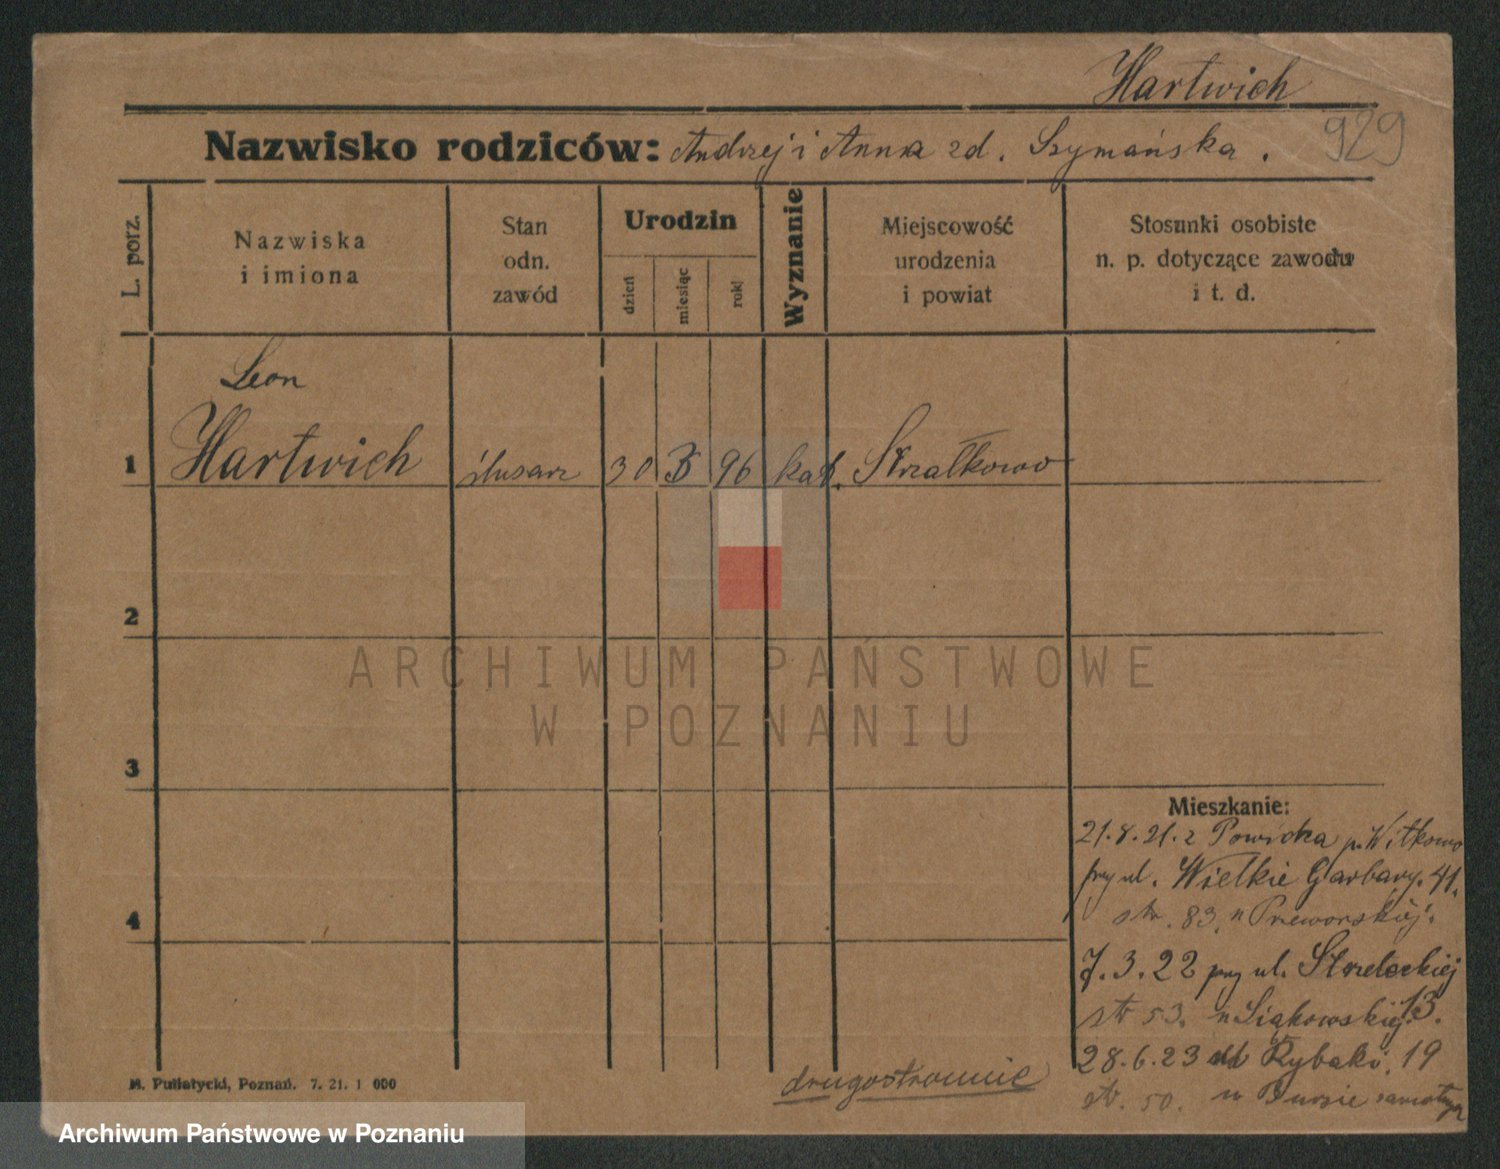 Hartwich
Nazwisko rodziców: Andrzej i Anna zd. Szymańska.
929
L. porz.
Nazwiska
i imiona
Stan
odn.
zawód
Urodzin
dzień
miesiąc
rok
Wyznanie
Miejscowość
urodzenia
i powiat
Stosunki osobiste
n. p. dotyczące zawodu
i t. d.
Leon
1 Hartwich ślusarz 30 3 96 kat. Strzałkowo
2
ARCHIWUM PAŃSTWOWE
W POZNANIU
3
4
Mieszkanie:
21.8.21. z Powidza p. Witkowo
przy ul. Wielkie Garbary. 41.
str. 83. u Przeworskiej.
7.3.22 przy ul. Strzeleckiej
13.
str 53. u Siąkowskiej.
28.6.23 Rybaki. 19
str. 50.
drugostronnie
M. Putiatycki, Poznań. 7. 21. 1 000
Archiwum Państwowe w Poznaniu